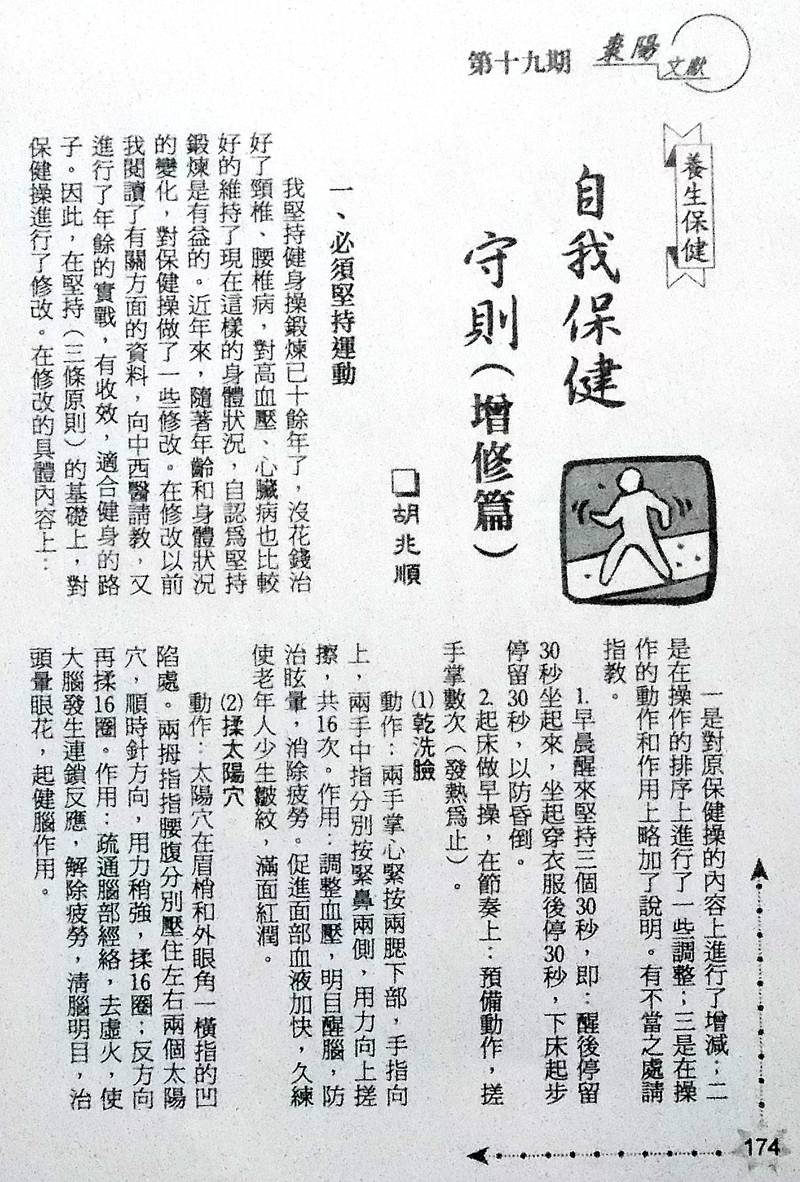 第十九期
棗陽
文獻
養生保健
自我保健
守則（增修篇）
□胡兆順
一、必須堅持運動
我堅持健身操鍛煉已十餘年了，沒花錢治
好了頸椎、腰椎病，對高血壓、心臟病也比較
好的維持了現在這樣的身體狀況，自認爲堅持
鍛煉是有益的。近年來，隨著年齡和身體狀況
的變化，對保健操做了一些修改。在修改以前
我閱讀了有關方面的資料，向中西醫請教，又
進行了年餘的實戰，有收效，適合健身的路
子。因此，在堅持（三條原則）的基礎上，對
保健操進行了修改。在修改的具體內容上：
一是對原保健操的內容上進行了增減；二
是在操作的排序上進行了一些調整；三是在操
作的動作和作用上略加了說明。有不當之處請
指教。
1.早晨醒來堅持三個30秒，即：醒後停留
30秒坐起來，坐起穿衣服後停30秒，下床起步
停留30秒，以防昏倒。
2.起床做早操，在節奏上：預備動作，搓
手掌數次（發熱爲止）。
⑴乾洗臉
動作：兩手掌心緊按兩腮下部，手指向
上，兩手中指分別按緊鼻兩側，用力向上搓
擦，共16次。作用：調整血壓，明目醒腦，防
治眩暈，消除疲勞。促進面部血液加快，久練
使老年人少生皺紋，滿面紅潤。
⑵揉太陽穴
動作：太陽穴在眉梢和外眼角一橫指的凹
陷處。兩拇指指腰腹分別壓住左右兩個太陽
穴，順時針方向，用力稍強，揉16圈；反方向
再揉16圈。作用：疏通腦部經絡，去虛火，使
大腦發生連鎖反應，解除疲勞，清腦明目，治
頭暈眼花，起健腦作用。
174